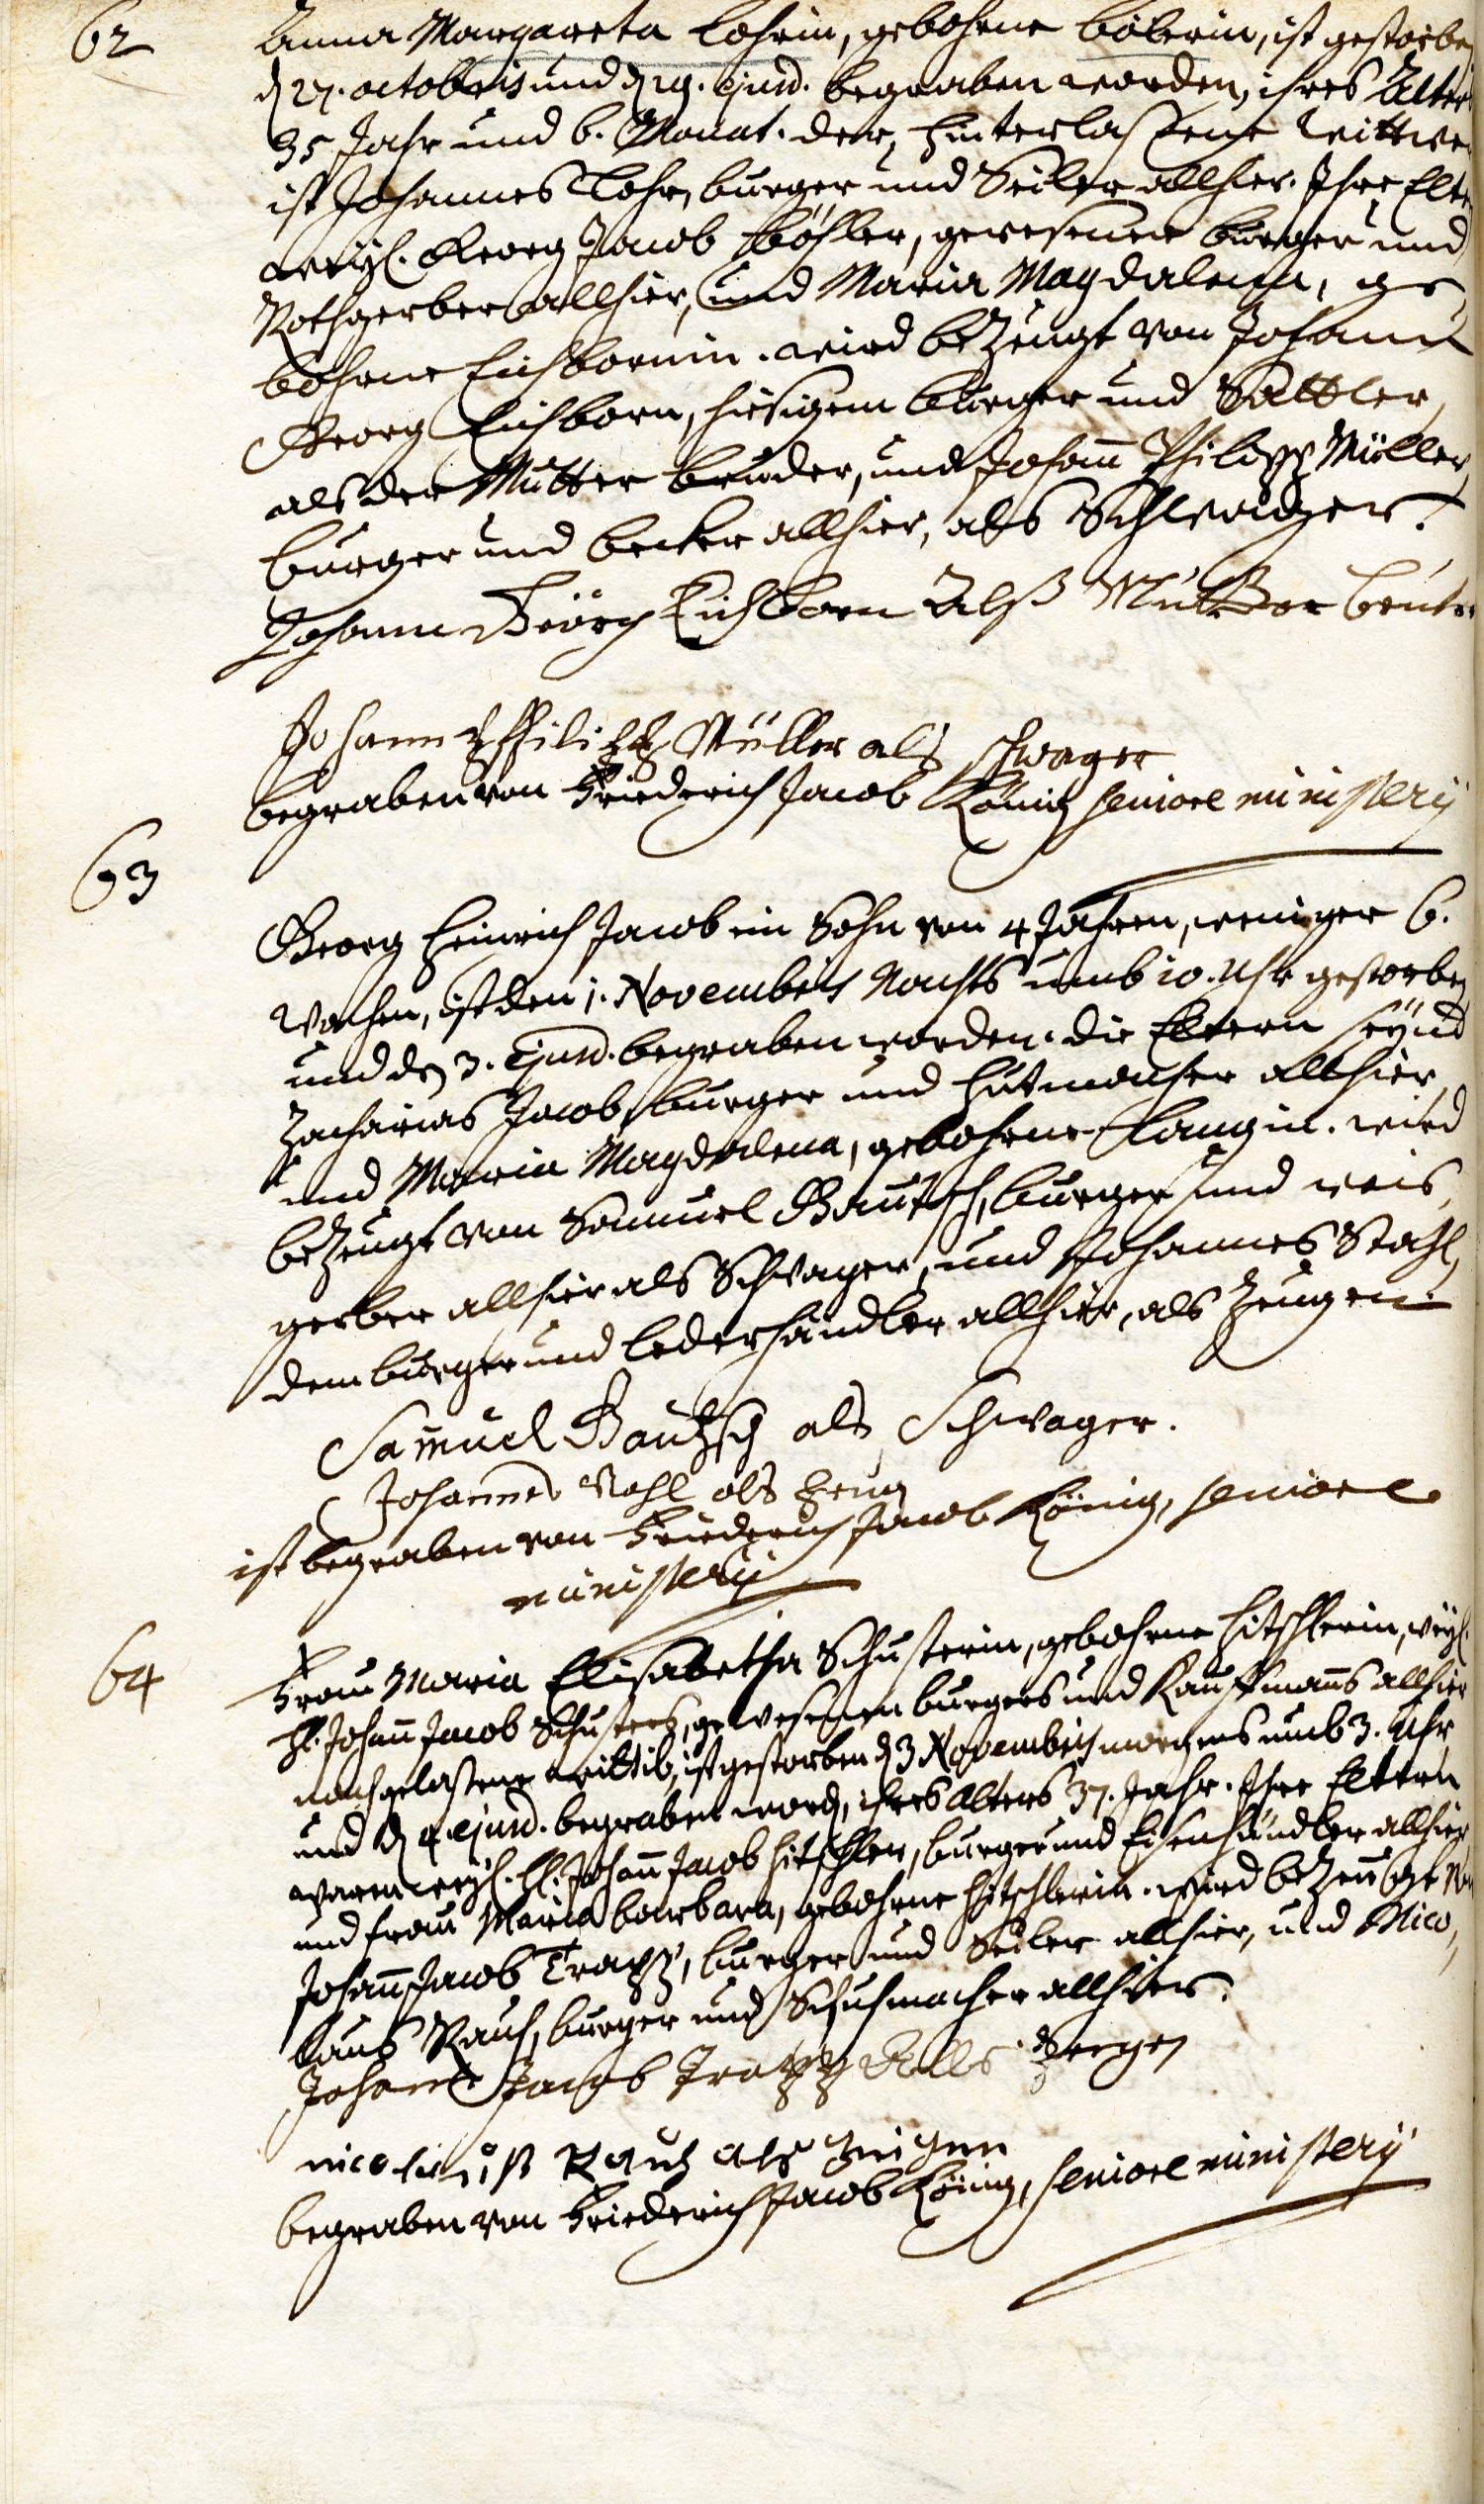 62
Anna Margareta Lohrin, gebohrne Böhlerin, ist gestorben
d 27. octobris und d 29. ejusd. begraben worden, ihres Alters
35 Jahr und 6. Monat. der hinterlaßene Wittwer
ist Johannes Lohr, burger und Seiler allhier. Ihre Eltern
weyl. Georg Jacob Böhler, gewesener burger und
Rothgerber allhier, und Maria Magdalena, ge
bohrne Eichbornin. wird bezeugt von Johann
Georg Eichborn, hiesigem burger und Sattler,
als der Mutter bruder, und Johann Philipp Müller,
burger und becker allhier, als Schwager.
Johann Geörg Eichborn Alß Mutter bruter
Johann Philipp Müller als schwager
begraben von Friederich Jacob König seniore ministerij
63
Georg Heinrich Jacob ein Sohn von 4 Jahren, weniger 6.
Wochen, ist den 1. Novembris Nachts umb 10. Uhr gestorben
und den 3. Ejusd. begraben worden. die Eltern seynd
Zacharias Jacob, burger und Hutmacher allhier,
und Maria Magdalena, gebohrne Langin. wird
bezeugt von Samuel Bautsch, burger und weis,
gerber allhier als Schwager, und Johannes Stahl,
dem burger und lederhändler allhier, als Zeugen.
Samuel Bautzsch als Schwager.
Johannes Stahl als Zeug
ist begraben von Friederich Jacob König, seniore
ministerij
64
Frau Maria Elisabetha Schusterin, gebohrne Hitschlerin, weyl.
H. Johann Jacob Schusters, gewesenen burgers und Kauffmanns allhier
nachgelaßene wittib, ist gestorben d 3 Novembris morgens umb 3. Uhr
und d 4. ejusd. begraben word, ihres Alters 37. Jahr. Ihre Eltern
waren weyl. H. Johann Jacob Hitschler, burger und Eisenhändler allhier
und frau Maria barbara, gebohrne Hitschlerin. wird bezeugt von
Johann Jacob Trapp, burger und Seiler allhier, und Nico,
laus Rauch, burger und Schuhmacher allhier.
Johann Jacob Trapp Alls Zeugen
nicolauß Rauch als Zeigen
begraben von Friederich Jacob König, seniore ministerij